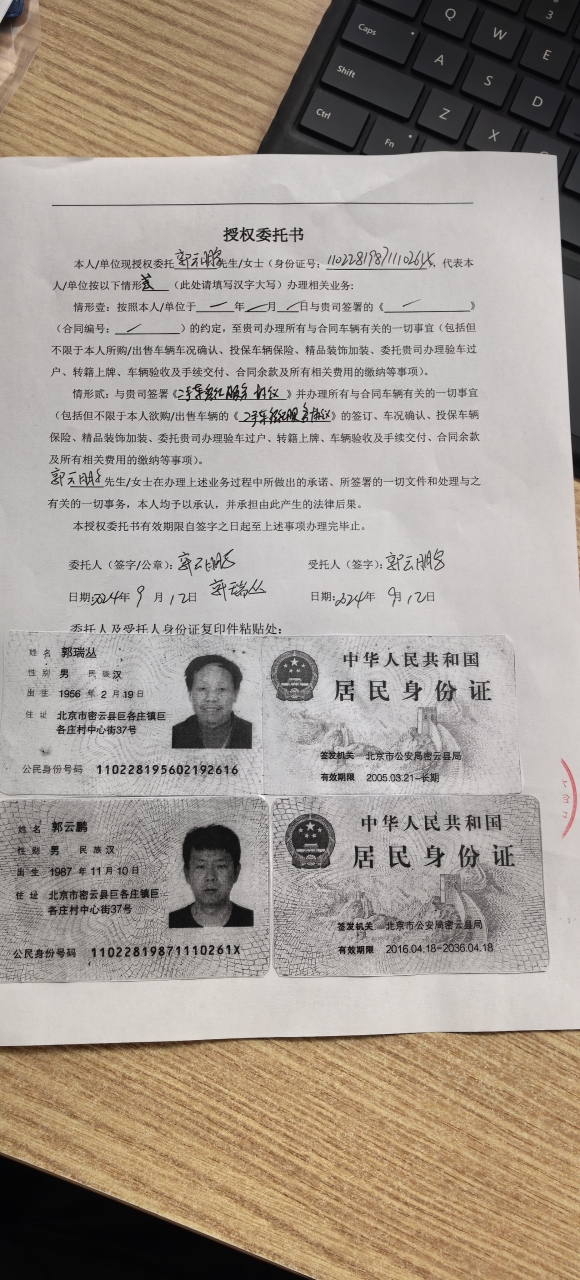 Q
W
E
3
Caps
A
S
D
Shift
Z
X
Ctrl
Fn
授权委托书
本人/单位现授权委托郭云鹏先生/女士（身份证号：11022819871110261X，代表本
人/单位按以下情形（此处请填写汉字大写）办理相关业务:
情形壹：按照本人/单位于 年 月 日与贵司签署的《 》
（合同编号： ）的约定，至贵司办理所有与合同车辆有关的一切事宜（包括但
不限于本人所购/出售车辆车况确认、投保车辆保险、精品装饰加装、委托贵司办理验车过
户、转籍上牌、车辆验收及手续交付、合同余款及所有相关费用的缴纳等事项）。
情形贰：与贵司签署《二手车 服务协议》并办理所有与合同车辆有关的一切事宜
（包括但不限于本人欲购/出售车辆的《二手车 服务协议》的签订、车况确认、投保车辆
保险、精品装饰加装、委托贵司办理验车过户、转籍上牌、车辆验收及手续交付、合同余款
及所有相关费用的缴纳等事项）。
郭云鹏先生/女士在办理上述业务过程中所做出的承诺、所签署的一切文件和处理与之
有关的一切事务，本人均予以承认，并承担由此产生的法律后果。
本授权委托书有效期限自签字之日起至上述事项办理完毕止。
委托人（签字/公章）：郭云鹏 受托人（签字）：郭云鹏
日期：2024年 9 月 12日 郭瑞丛 日期：2024年 9月 12日
委托人及受托人身份证复印件粘贴处：
姓名 郭瑞丛
性别 男 民族 汉
出生 1956 年 2 月 19 日
住址 北京市密云县巨各庄镇巨
各庄村中心街37号
公民身份号码 110228195602192616
中华人民共和国
居民身份证
签发机关 北京市公安局密云县局
有效期限 2005.03.21-长期
姓名 郭云鹏
性别 男 民族 汉
出生 1987 年 11 月 10 日
住址 北京市密云县巨各庄镇巨
各庄村中心街37号
公民身份号码 11022819871110261X
中华人民共和国
居民身份证
签发机关 北京市公安局密云县局
有效期限 2016.04.18-2036.04.18